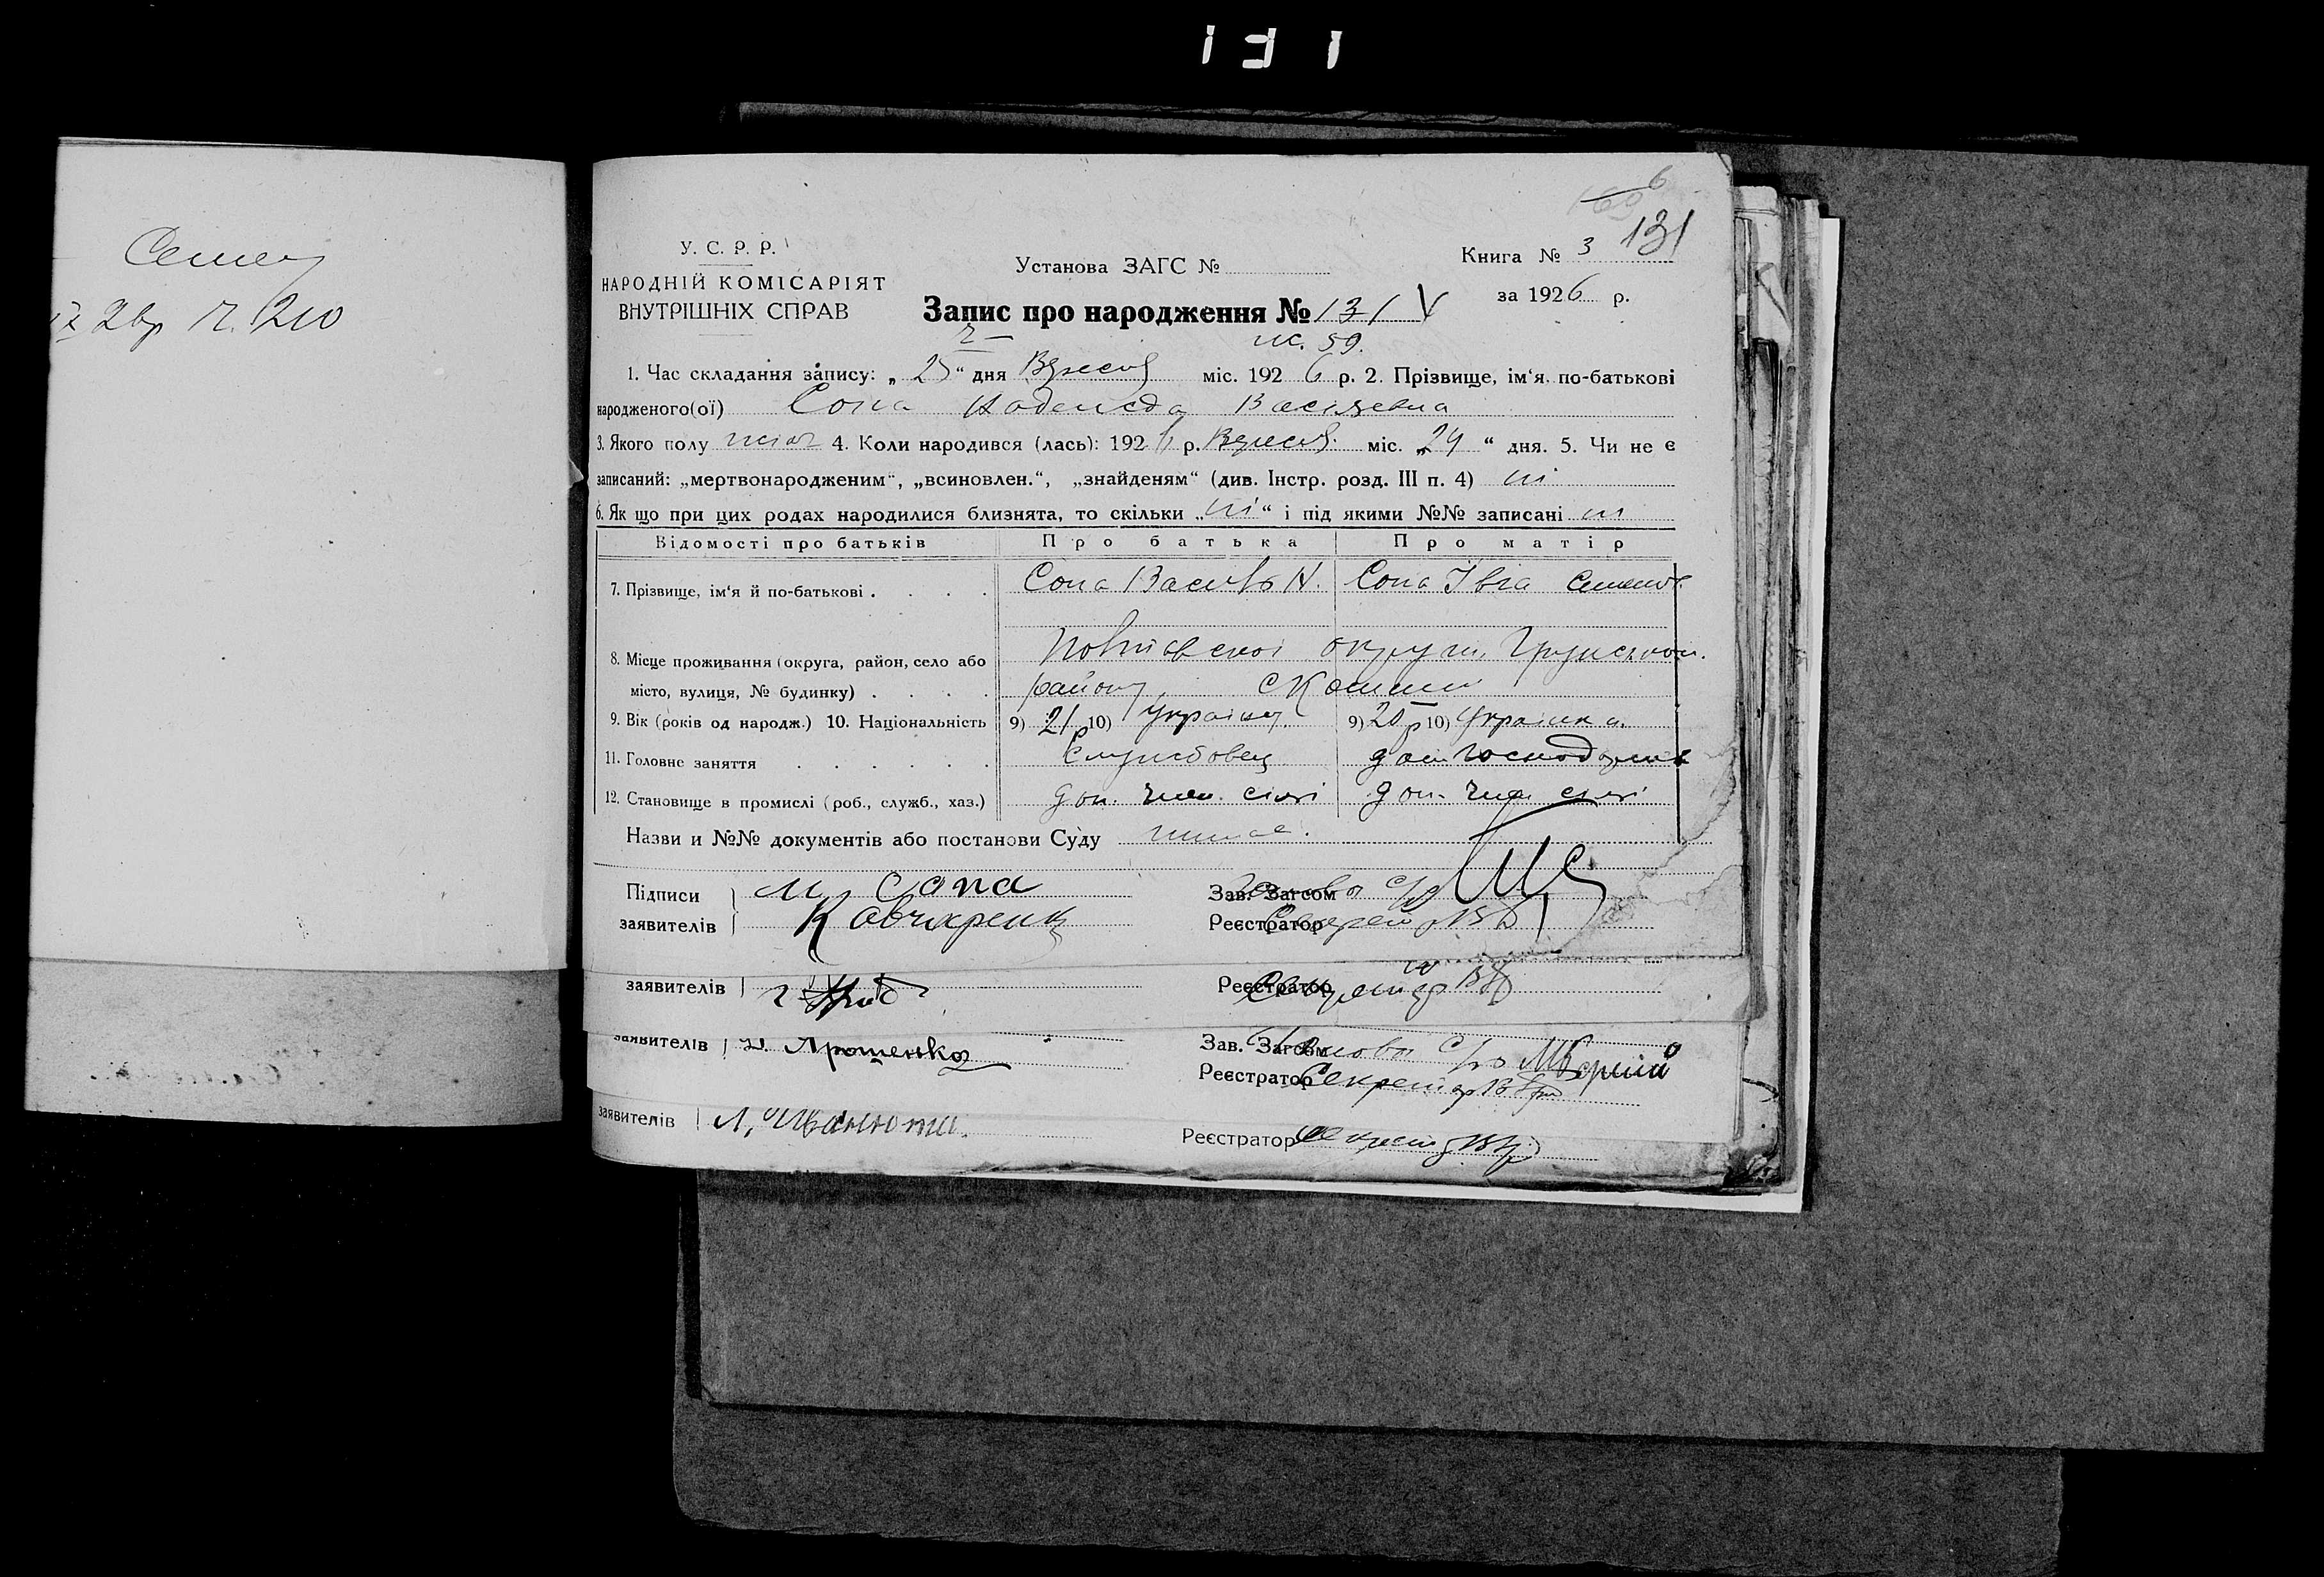 131
Семен
2вр Ч. 210
6
169
131
У. С. Р. Р.
НАРОДНІЙ КОМІСАРІЯТ
ВНУТРІШНІХ СПРАВ
Установа ЗАГС №
Книга № 3
за 1926 р.
Запис про народження № 131 V
ж. 59.
1. Час складання запису: „ 25 “ дня Вересня міс. 192 6 р. 2. Прізвище, ім‘я по-батькові
народженого(ої) Сопа Надежда Василевна
3. Якого полу жіноч 4. Коли народився (лась): 192 6 р. Вересня міс. „ 24 “ дня. 5. Чи не є
записаний: „мертвонародженим“, „всиновлен.“, „знайденям“ (див. Інстр. розд. III п. 4) ні
6. Як що при цих родах народилися близнята, то скільки „ ні “ і під якими №№ записані ні
Відомості про батьків Про батька Про матір
7. Прізвище, ім‘я й по-батькові . . . . Сопа Василь Н. Сопа Івга Семенов.
8. Місце проживання (округа, район, село або Полтавської округи, Грунськом.
місто, вулиця, № будинку) . . . . району,
9. Вік (років од народж.) 10. Національність 9) 21 р 10) українец 9) 20 р 10) Українка
11. Головне заняття . . . . . . Службовец дом господарка
12. Становище в промислі (роб., служб., хаз.) доп. член. сімї доп. член сімї
Назви и №№ документів або постанови Суду немає.
Підписи Сапа
Зав. Загсом Голова с/р
заявителів
Реєстратор Секретар
заявителів
Реєстратор Секретар
заявителів Ярошенко
Зав. Загсом Голова с/р
Реєстратор Секретар
заявителів Л. Иванюта.
Реєстратор Секретар